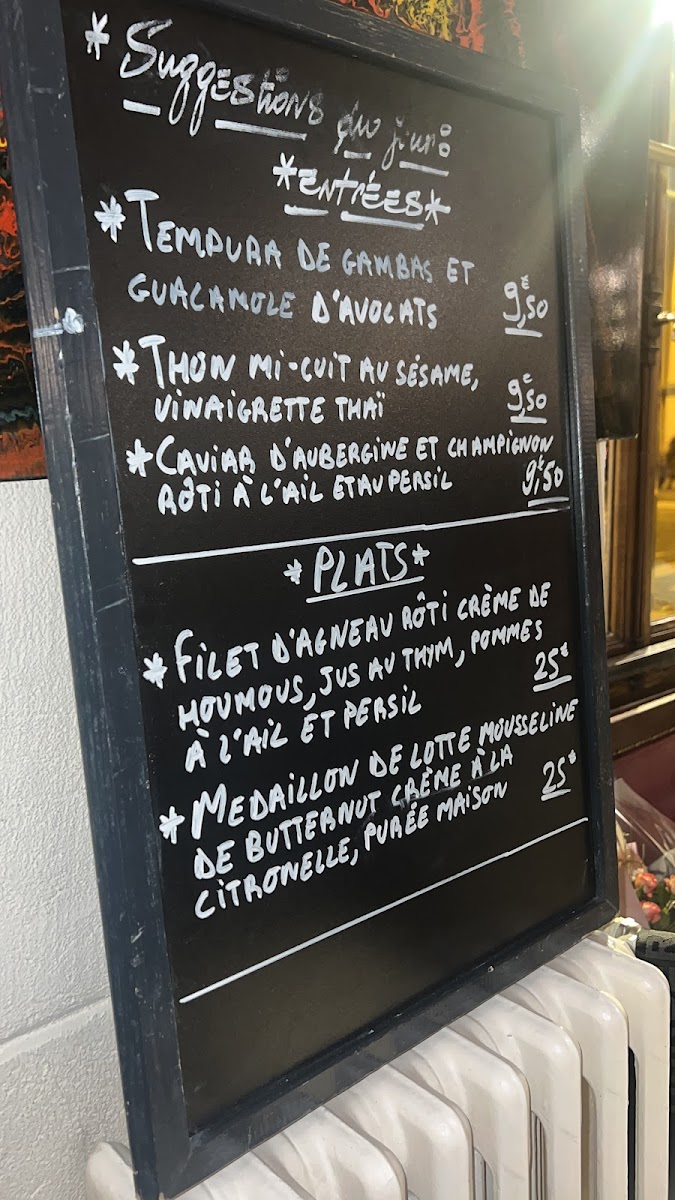 * Suggestions du jour:
*ENTRÉES*
* TEMPURA DE GAMBAS ET
GUACAMOLE D'AVOCATS 9€,50
* THON MI-CUIT AU SÉSAME,
VINAIGRETTE THAÏ 9€,50
* CAVIAR D'AUBERGINE ET CHAMPIGNON
RÔTI À L'AIL ET AU PERSIL 9€,50
* PLATS *
* FILET D'AGNEAU RÔTI CRÈME DE
HOUMOUS, JUS AU THYM, POMMES
À L'AIL ET PERSIL 25€
* MEDAILLON DE LOTTE MOUSSELINE
DE BUTTERNUT CRÈME À LA
CITRONELLE, PURÉE MAISON 25€